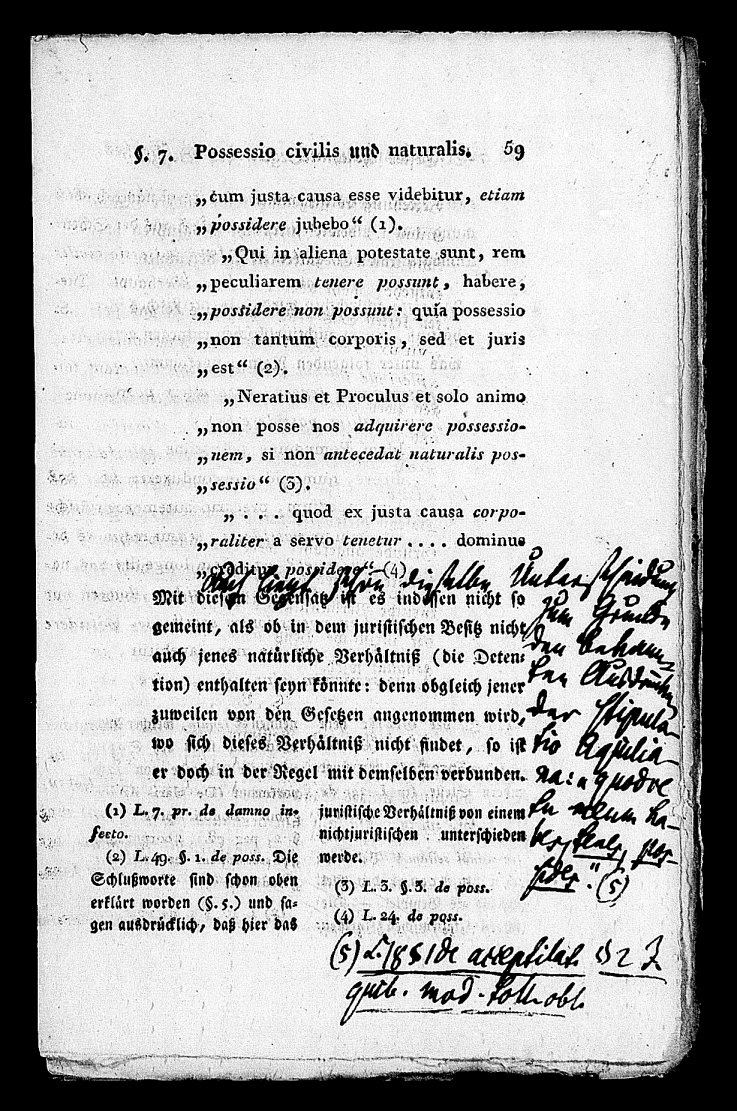 §. 7. Possessio civilis und naturalis. 59
„cum justa causa esse videbitur, etiam
„possidere jubebo“ (1).
„Qui in aliena potestate sunt, rem
„peculiarem tenere possunt, habere,
„possidere non possunt: quia possessio
„non tantum corporis, sed et juris
„est“ (2).
„Neratius et Proculus et solo animo
„non posse nos adquirere possessio-
„nem, si non antecedat naturalis pos-
„sessio“ (3).
„ . . . quod ex justa causa corpo-
„raliter a servo tenetur . . . . dominus
„creditur possidere“ (4)
Auch liegt schon dieselbe Unterscheidung
zum Grunde
den bekann-
ten Ausdrücken
der Stipula-
tio Aquilia-
na: „quodve
tu meum ha-
bes, tenes, pos-
sides“. (5)
Mit diesem Gegensatz ist es indessen nicht so
gemeint, als ob in dem juristischen Besitz nicht
auch jenes natürliche Verhältniß (die Deten-
tion) enthalten seyn könnte: denn obgleich jener
zuweilen von den Gesetzen angenommen wird,
wo sich dieses Verhältniß nicht findet, so ist
er doch in der Regel mit demselben verbunden.
(1) L. 7. pr. de damno in-
fecto.
(2) L. 49. §. 1. de poss. Die
Schlußworte sind schon oben
erklärt worden (§. 5.) und sa-
gen ausdrücklich, daß hier das
juristische Verhältniß von einem
nichtjuristischen unterschieden
werde.
(3) L. 3. §. 3. de poss.
(4) L. 24. de poss.
(5) L. 18 § 1 de acceptilat. § 2 J.
quib. mod. toll. obl.